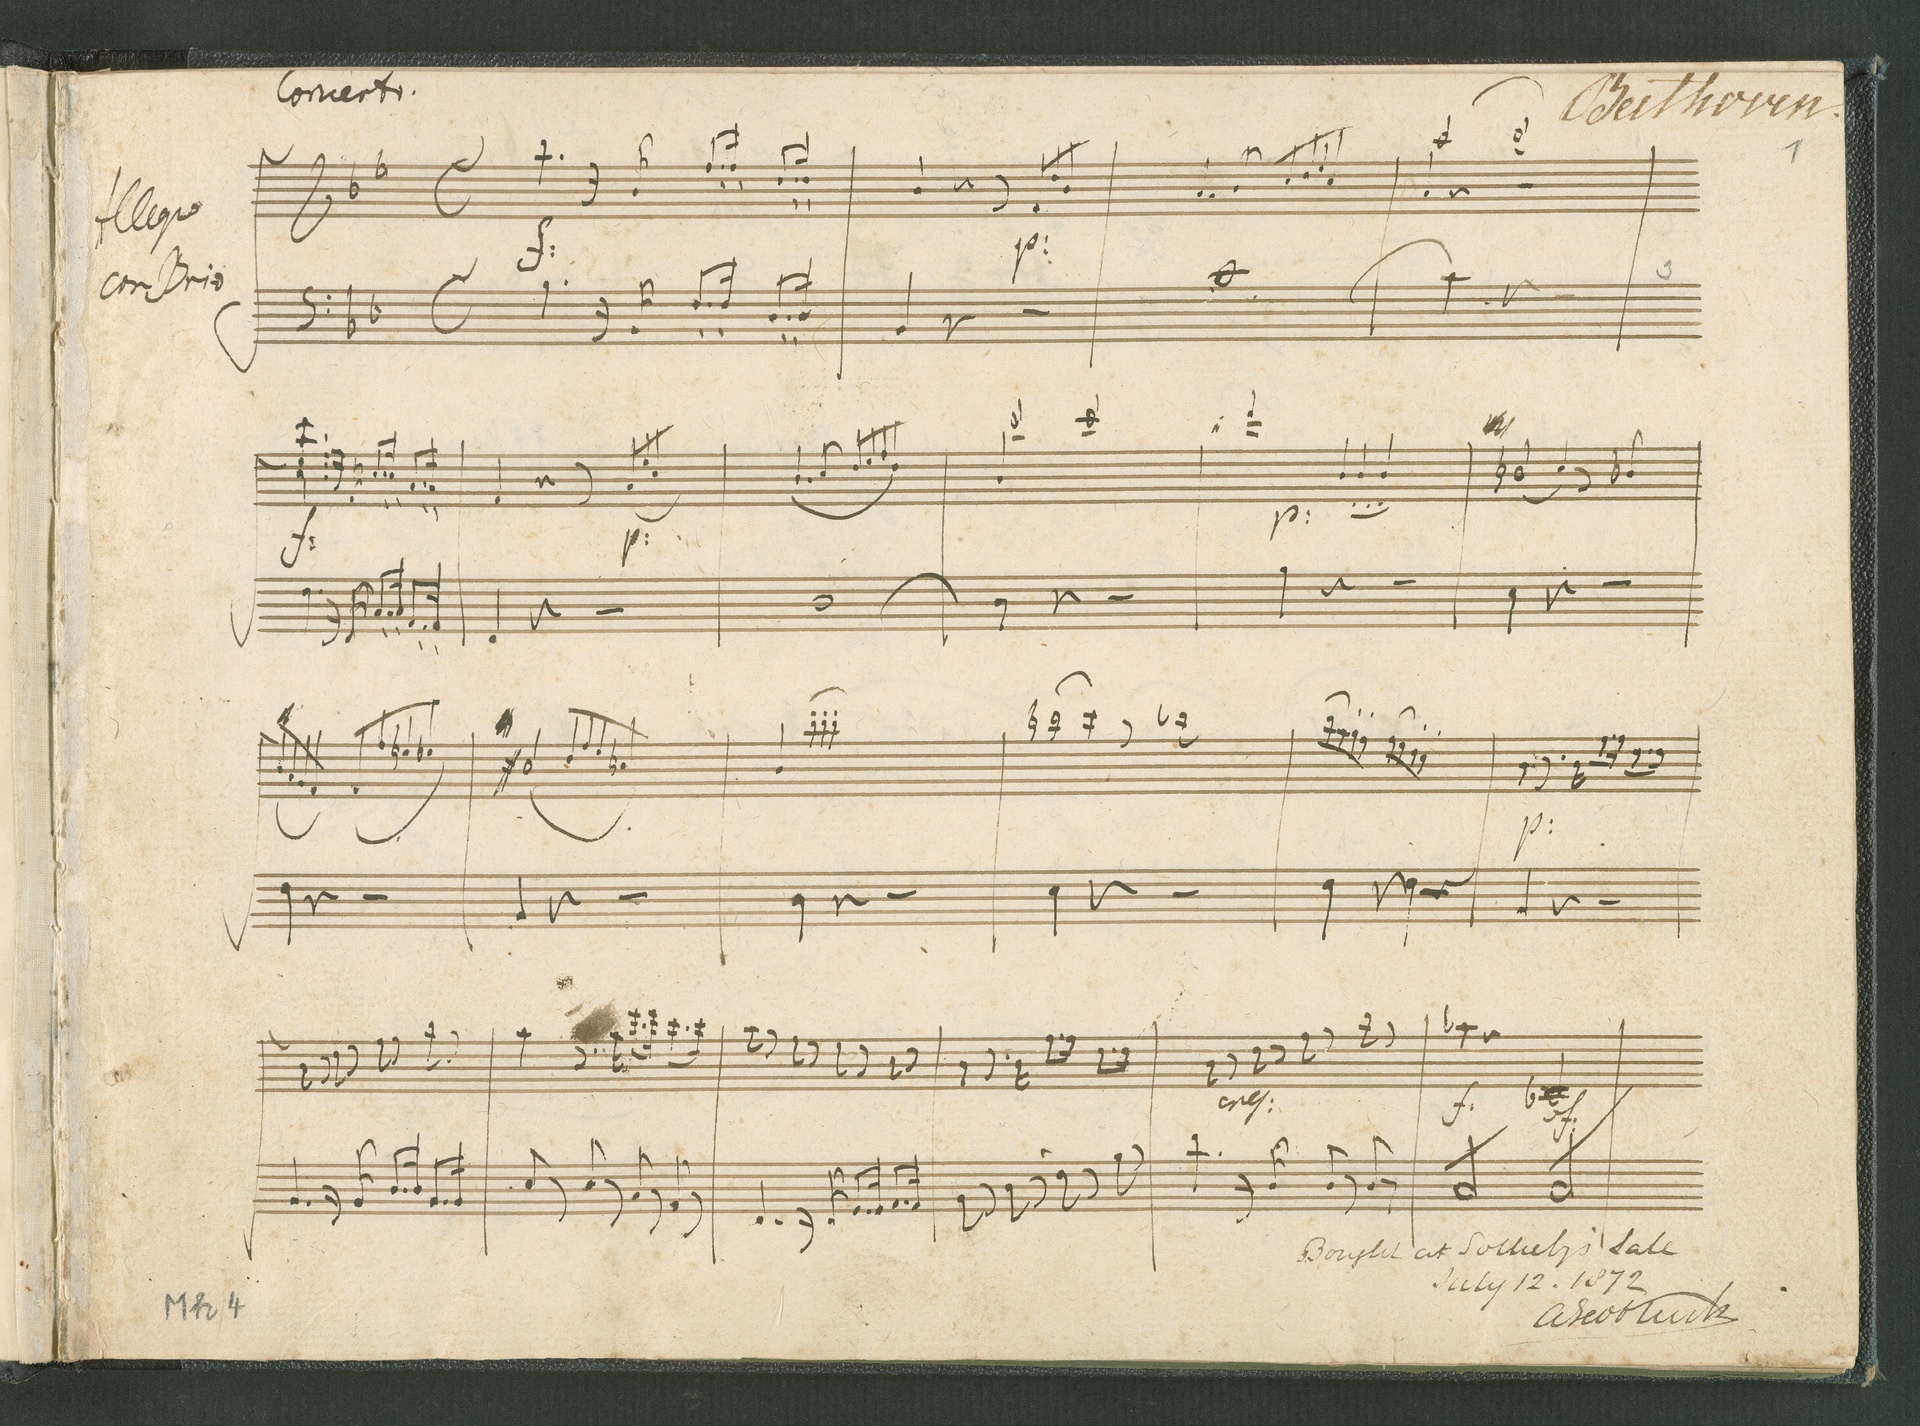 Concerto.
Beethoven.
1
Allegro
con Brio
f:
p:
3
f:
p:
p:
p:
cresc:
f:
sf:
Bought at Sotheby's Sale
July 12. 1872
Mh 4